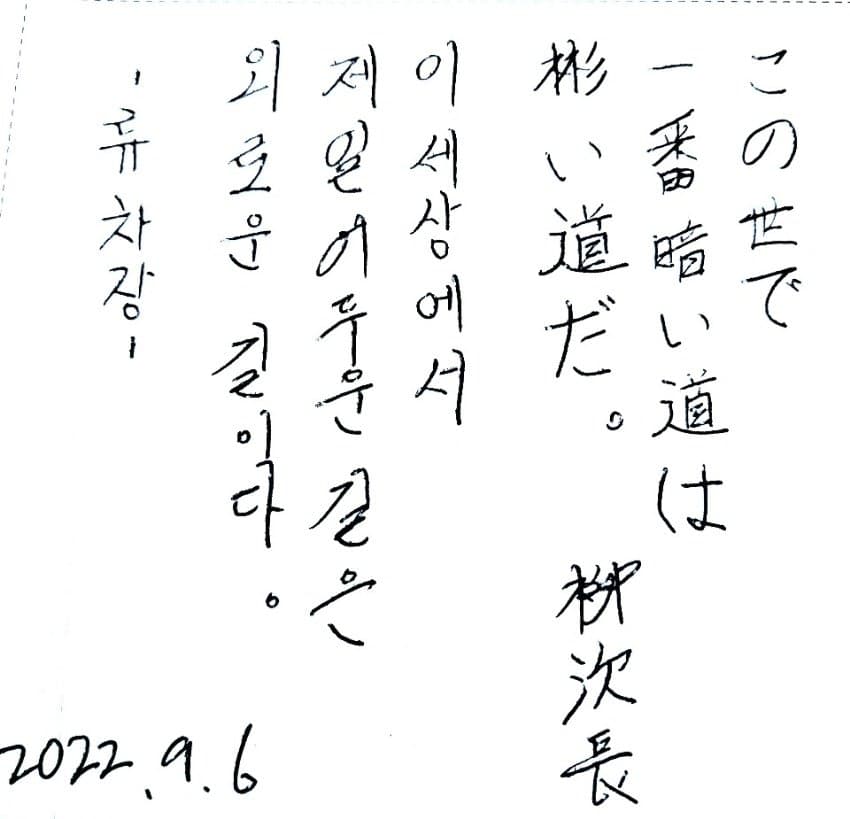 この世で
一番暗い道は
彬い道だ。 柳次長
이 세상에서
제일 어두운 길은
외로운 길이다.
-류차장-
2022.9.6